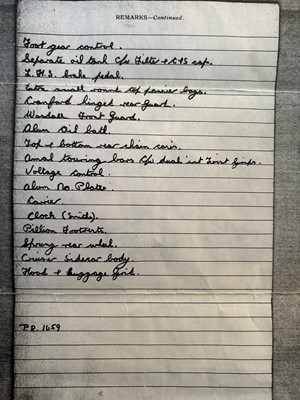 REMARKS—Continued.
Foot gear control.
Separate oil tank C/w Filter & C+S cap.
L.H.S. brake pedal.
Extra small round top pannier bags.
Cranford hinged rear guard.
Wardall Front Guard.
Alum Oil bath.
Top & bottom rear chain covers.
Amal touring bars C/w dual twist Grips.
Voltage control.
Alum No. Plates.
Carrier.
Clock (Smiths).
Pillion Footrests.
Sprung rear wheel.
Cruiser Sidecar body.
Hood & Luggage Grid.
P.R. 1659